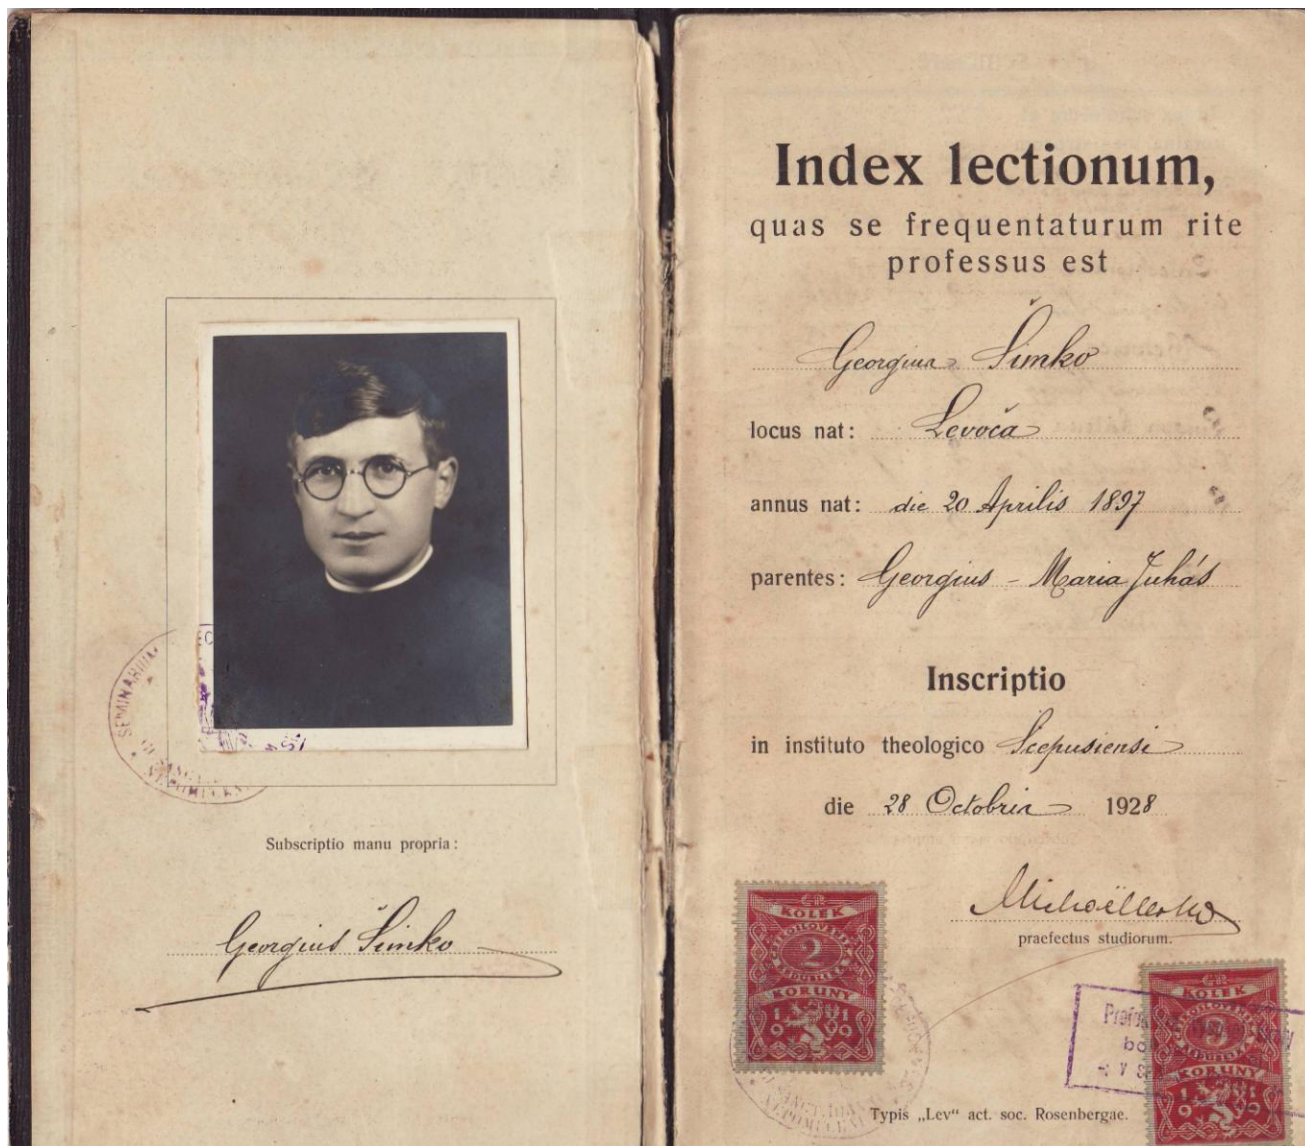 SEMINARIUM
Subscriptio manu propria:
Georgius Šimko
Index lectionum,
quas se frequentaturum rite
professus est
Georgius Šimko
locus nat: Levoča
annus nat: die 20 Aprilis 1897
parentes: Georgius - Maria Juhás
Inscriptio
in instituto theologico Scepusiensi
die 28 Octobris 1928
praefectus studiorum.
KOLEK
2
KORUNY
1919
KOLEK
KORUNY
Typis „Lev“ act. soc. Rosenbergae.